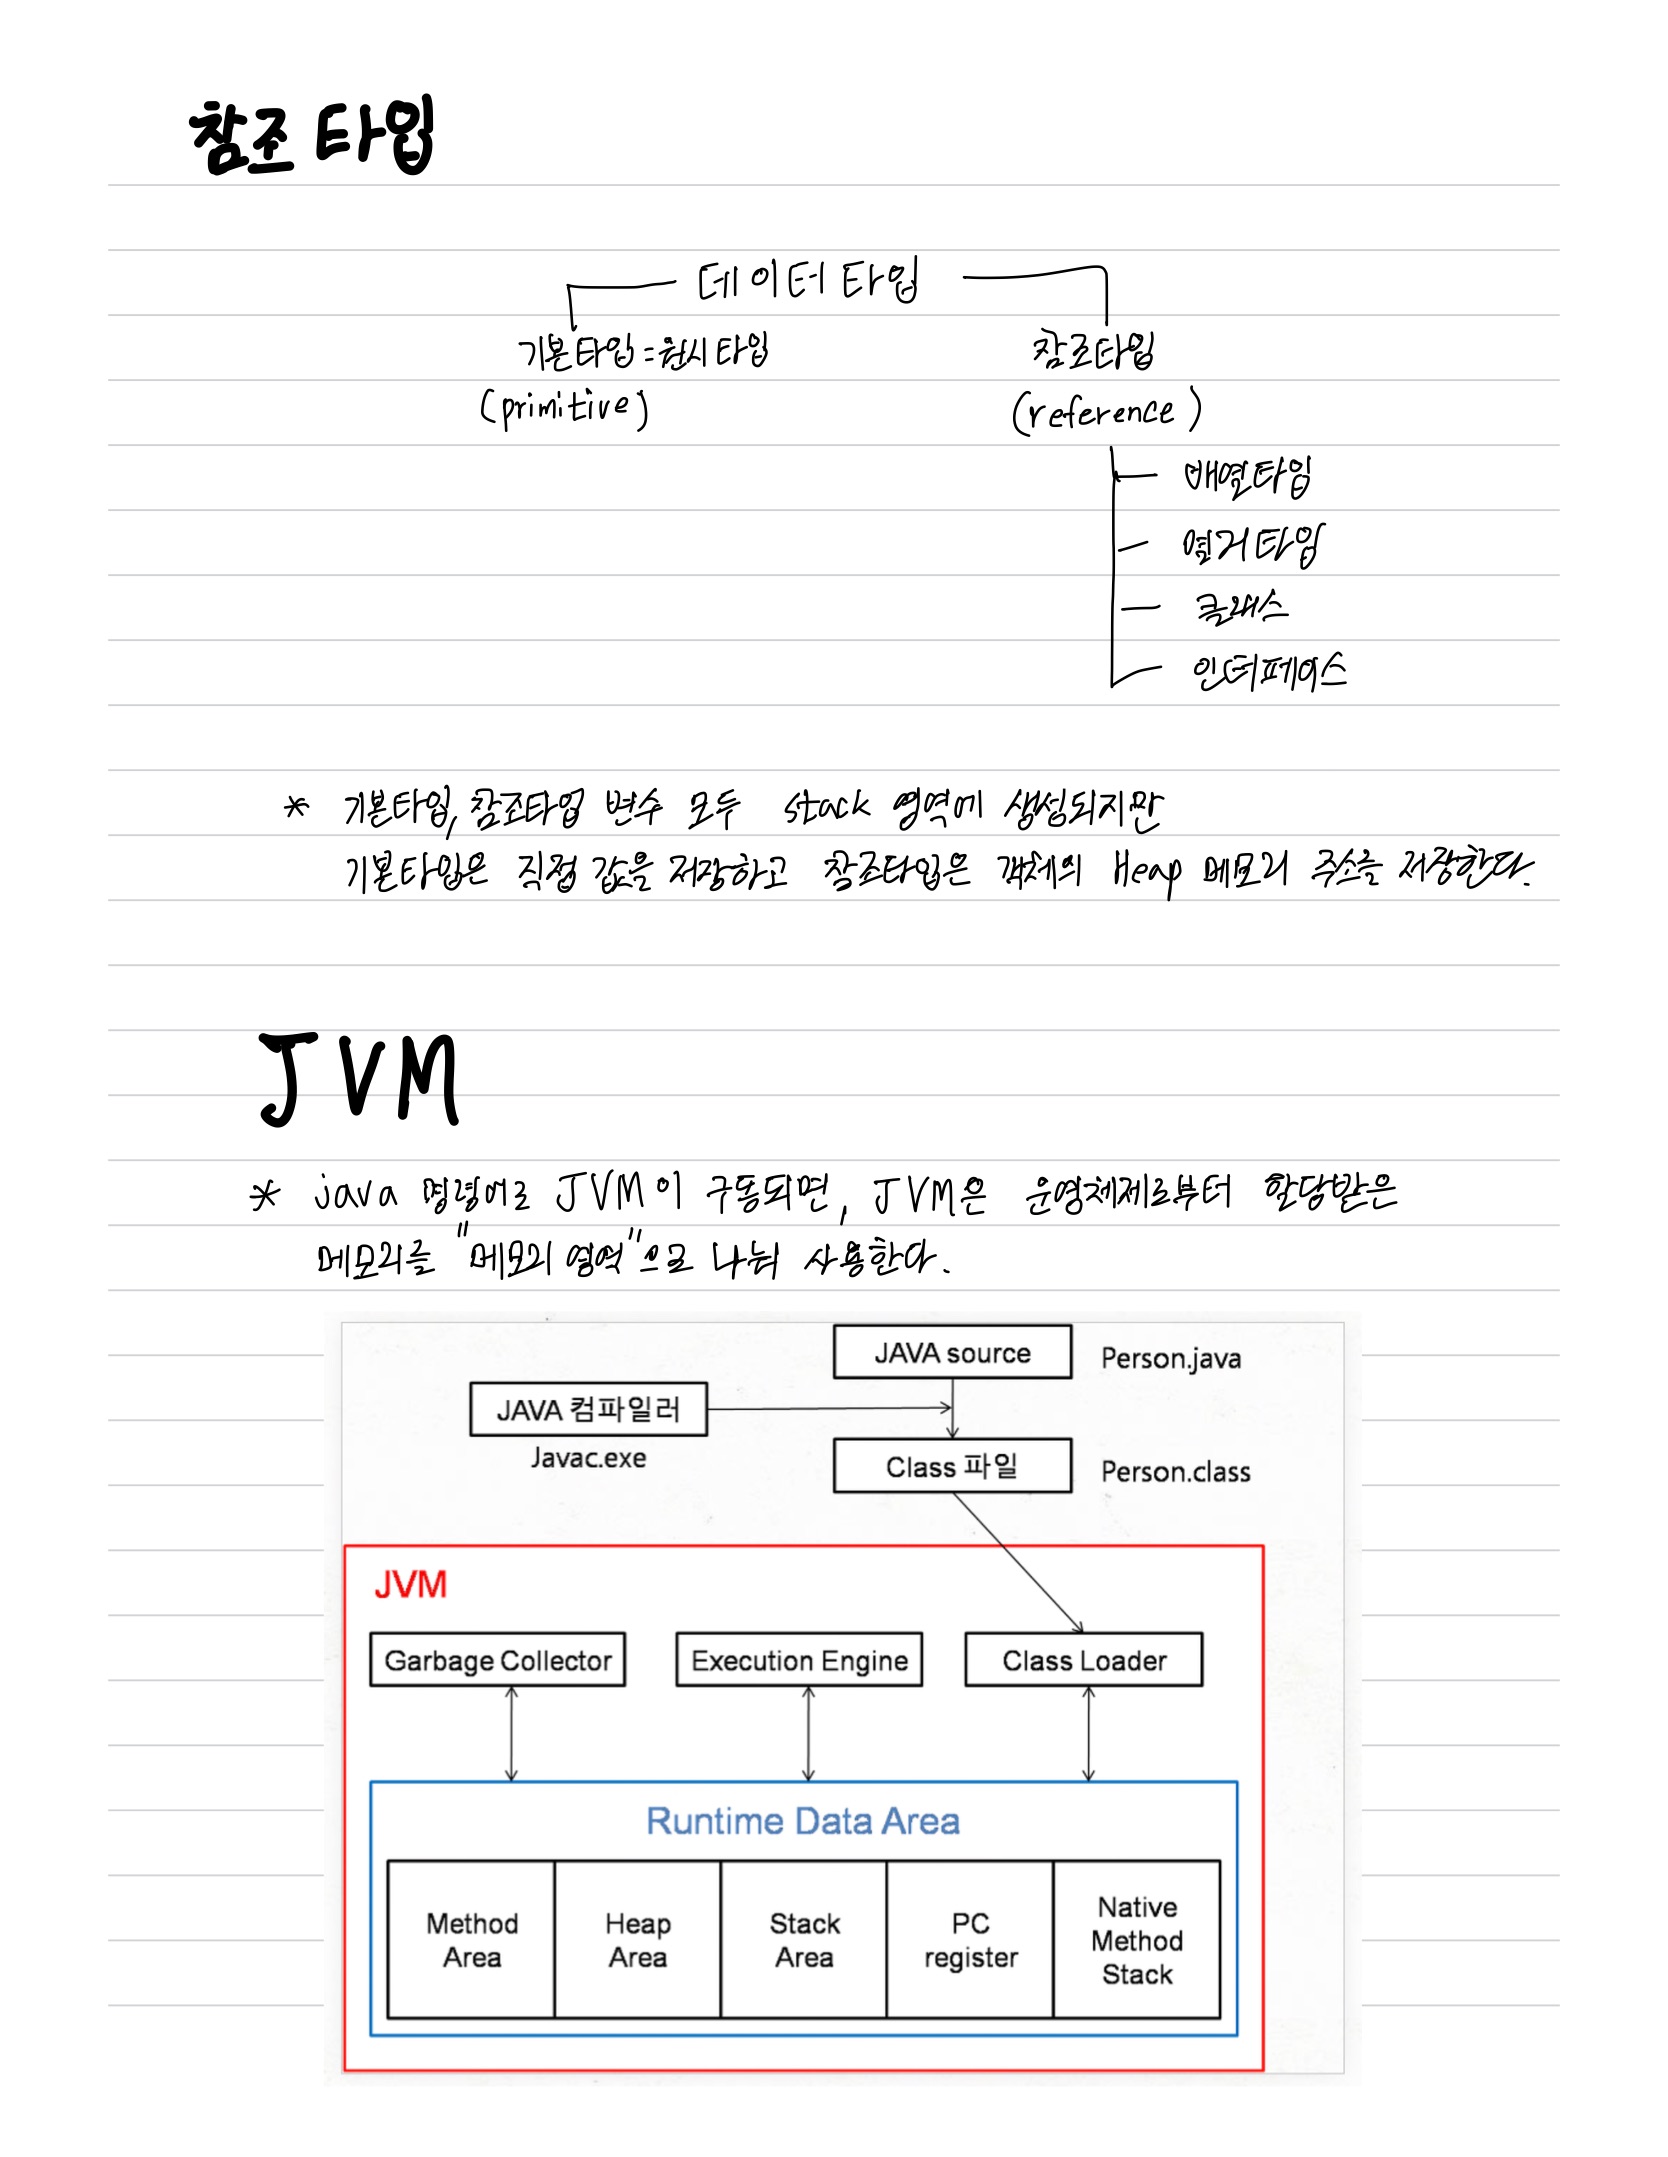 참조 타입
데이터 타입
기본타입 = 원시타입 참조타입
(primitive) (reference)
배열타입
열거타입
클래스
인터페이스
* 기본타입, 참조타입 변수 모두 stack 영역에 생성되지만
기본타입은 직접 값을 저장하고 참조타입은 객체의 Heap 메모리 주소를 저장한다.
JVM
* java 명령어로 JVM이 구동되면, JVM은 운영체제로부터 할당받은
메모리를 "메모리 영역"으로 나눠 사용한다.
JAVA source Person.java
JAVA 컴파일러
Javac.exe
Class 파일 Person.class
JVM
Garbage Collector Execution Engine Class Loader
Runtime Data Area
Method Area
Heap Area
Stack Area
PC register
Native Method Stack